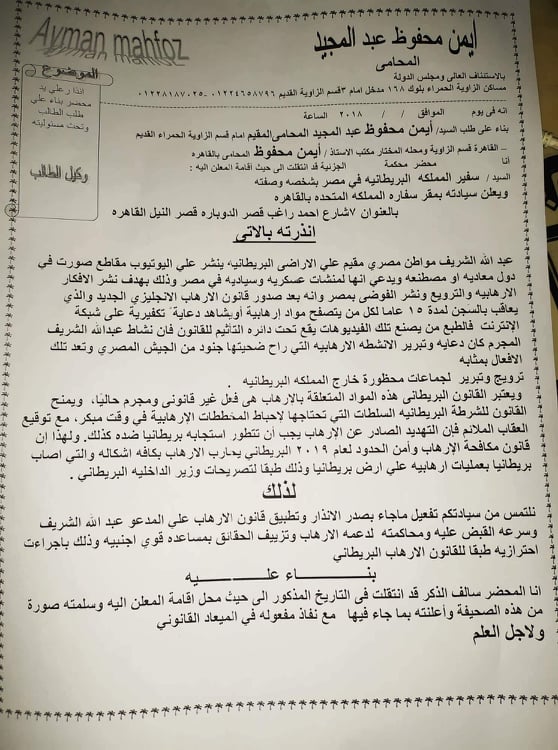 Ayman mahfoz
أيمن محفوظ عبد المجيد
المحامى
بالاستئناف العالى ومجلس الدولة
مساكن الزاوية الحمراء بلوك ١٦٨ مدخل امام ٣ قسم الزاوية القديم ٠١٢٢٤٦٥٨٧٩٦ - ٠١٢٢٨١٨٧٠٢٥
الموضوع
انذار علي يد
محضر بناء علي
طلب الطالب
وتحت مسئوليته
وكيل الطالب
انه فى يوم الموافق / / ٢٠١٨ الساعة
بناء على طلب السيد/ أيمن محفوظ عبد المجيد المحامى المقيم امام قسم الزاوية الحمراء القديم
– القاهرة قسم الزاوية ومحله المختار مكتب الاستاذ / أيمن محفوظ المحامى بالقاهره
أنا محضر محكمة الجزئية قد انتقلت الى حيث أقامة المعلن اليه :
السيد / سفير المملكه البريطانيه في مصر بشخصه وصفته
ويعلن سيادته بمقر سفاره المملكه المتحده بالقاهره
بالعنوان ٧شارع احمد راغب قصر الدوباره قصر النيل القاهره
انذرته بالاتي
عبد الله الشريف مواطن مصري مقيم علي الاراضى البريطانيه ينشر علي اليوتيوب مقاطع صورت في
دول معاديه او مصطنعه ويدعي انها لمنشات عسكريه وسياديه في مصر وذلك بهدف نشر الافكار
الارهابيه والترويع ونشر الفوضى بمصر وانه بعد صدور قانون الارهاب الانجليزي الجديد والذي
يعاقب بالسجن لمدة ١٥ عاما لكل من يتصفح مواد إرهابية أويشاهد دعاية تكفيرية على شبكة
الإنترنت فالطبع من يصنع تلك الفيديوهات يقع تحت دائره التأثيم للقانون فان نشاط عبدالله الشريف
المجرم كان دعايه وتبرير الانشطه الارهابيه التي راح ضحيتها جنود من الجيش المصري وتعد تلك
الافعال بمثابه
ترويج وتبرير لجماعات محظورة خارج المملكه البريطانيه .
ويعتبر القانون البريطانى هذه المواد المتعلقة بالإرهاب هى فعل غير قانونى ومجرم حاليًا، ويمنح
القانون للشرطة البريطانيه السلطات التي تحتاجها لإحباط المخططات الإرهابية في وقت مبكر، مع توقيع
العقاب الملائم فإن التهديد الصادر عن الإرهاب يجب أن تتطور استجابه بريطانيا ضده كذلك. ولهذا إن
قانون مكافحة الإرهاب وأمن الحدود لعام ٢٠١٩ البريطاني يحارب الارهاب بكافه اشكاله والتي اصاب
بريطانيا بعمليات ارهابيه علي ارض بريطانيا وذلك طبقا لتصريحات وزير الداخليه البريطاني .
لذلك
نلتمس من سيادتكم تفعيل ماجاء بصدر الانذار وتطبيق قانون الارهاب علي المدعو عبد الله الشريف
وسرعه القبض عليه ومحاكمته لدعمه الارهاب وتزييف الحقائق بمساعده قوي اجنبيه وذلك باجراءت
احترازيه طبقا للقانون الارهاب البريطاني
بنــــاء عليــــه
انا المحضر سالف الذكر قد انتقلت فى التاريخ المذكور الى حيث محل اقامة المعلن اليه وسلمته صورة
من هذه الصحيفة وأعلنته بما جاء فيها مع نفاذ مفعوله في الميعاد القانوني
ولاجل العلم